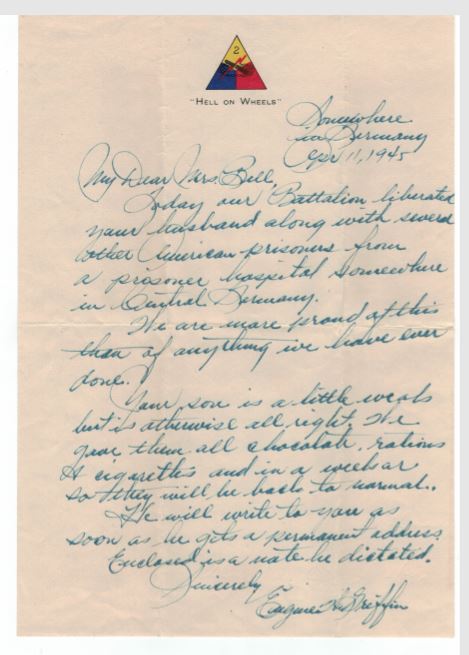 2
"HELL ON WHEELS"
Somewhere
in Germany
Apr 11, 1945
My Dear Mrs. Bell,
Today our Battalion liberated
your husband along with several
other American prisoners from
a prisoner hospital somewhere
in Central Germany.
We are more proud of this
than of anything we have ever
done.
Your son is a little weak
but is otherwise all right. We
gave them all chocolate, rations
& cigarettes and in a week or
so they will be back to normal.
He will write to you as
soon as he gets a permanent address.
Enclosed is a note he dictated.
Sincerely
Eugene A. Griffin